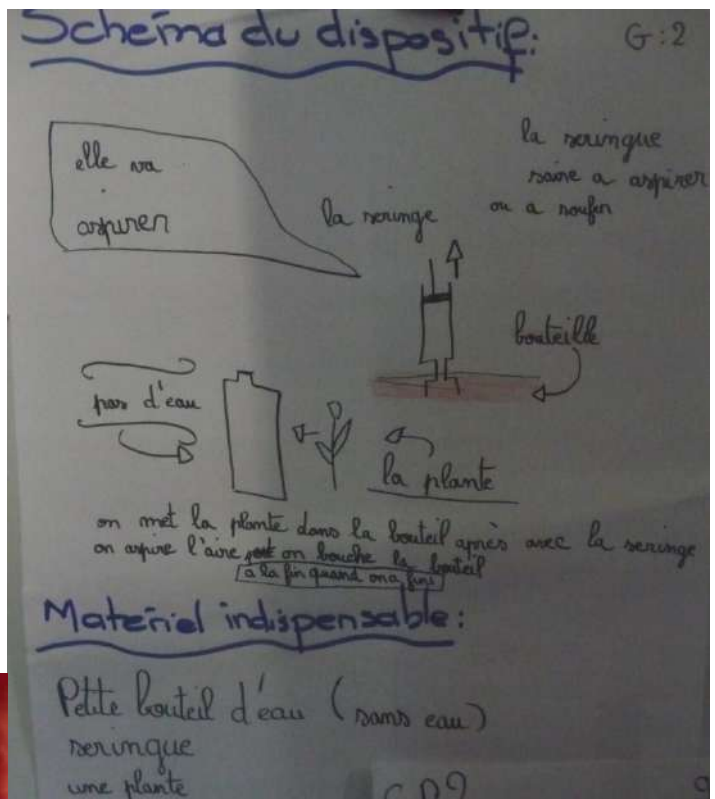 Schéma du dispositif:
G:2
elle va
aspirer
la seringue
a aspirer
ou a
la seringe
bouteille
pas d'eau
la plante
on met la plante dans la bouteil après avec la seringe
on aspire l'aire on bouche la bouteil
à la fin quand on a fini
Matériel indispensable:
Petite bouteil d'eau (sans eau)
seringue
une plante